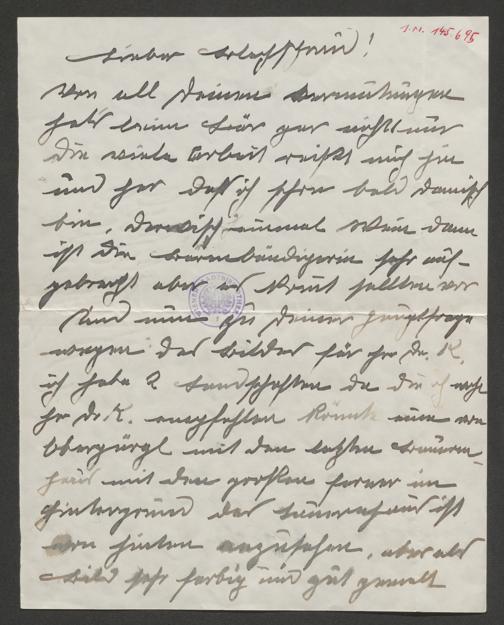 I.N. 145.695
Lieber
Von all Deinen Vermutungen
hats keine für gar nichts nur
die viele Arbeit reißt mich hin
und her daß ich schon bald damisch
bin, einmal Wein dann
ist die sehr auf-
gebracht aber es sollten wir
Und nun zu Deiner Hauptfrage
wegen des Bildes für Hr Dr. K.
ich habe 2 Landschaften da die ich auch
Hr Dr. K. empfehlen könnte eine von
Obergurgl mit den letzten Bauern-
haus mit den großen Ferner im
Hintergrund das Bauernhaus ist
von hinten anzusehen, aber als
Bild sehr farbig und gut gemalt